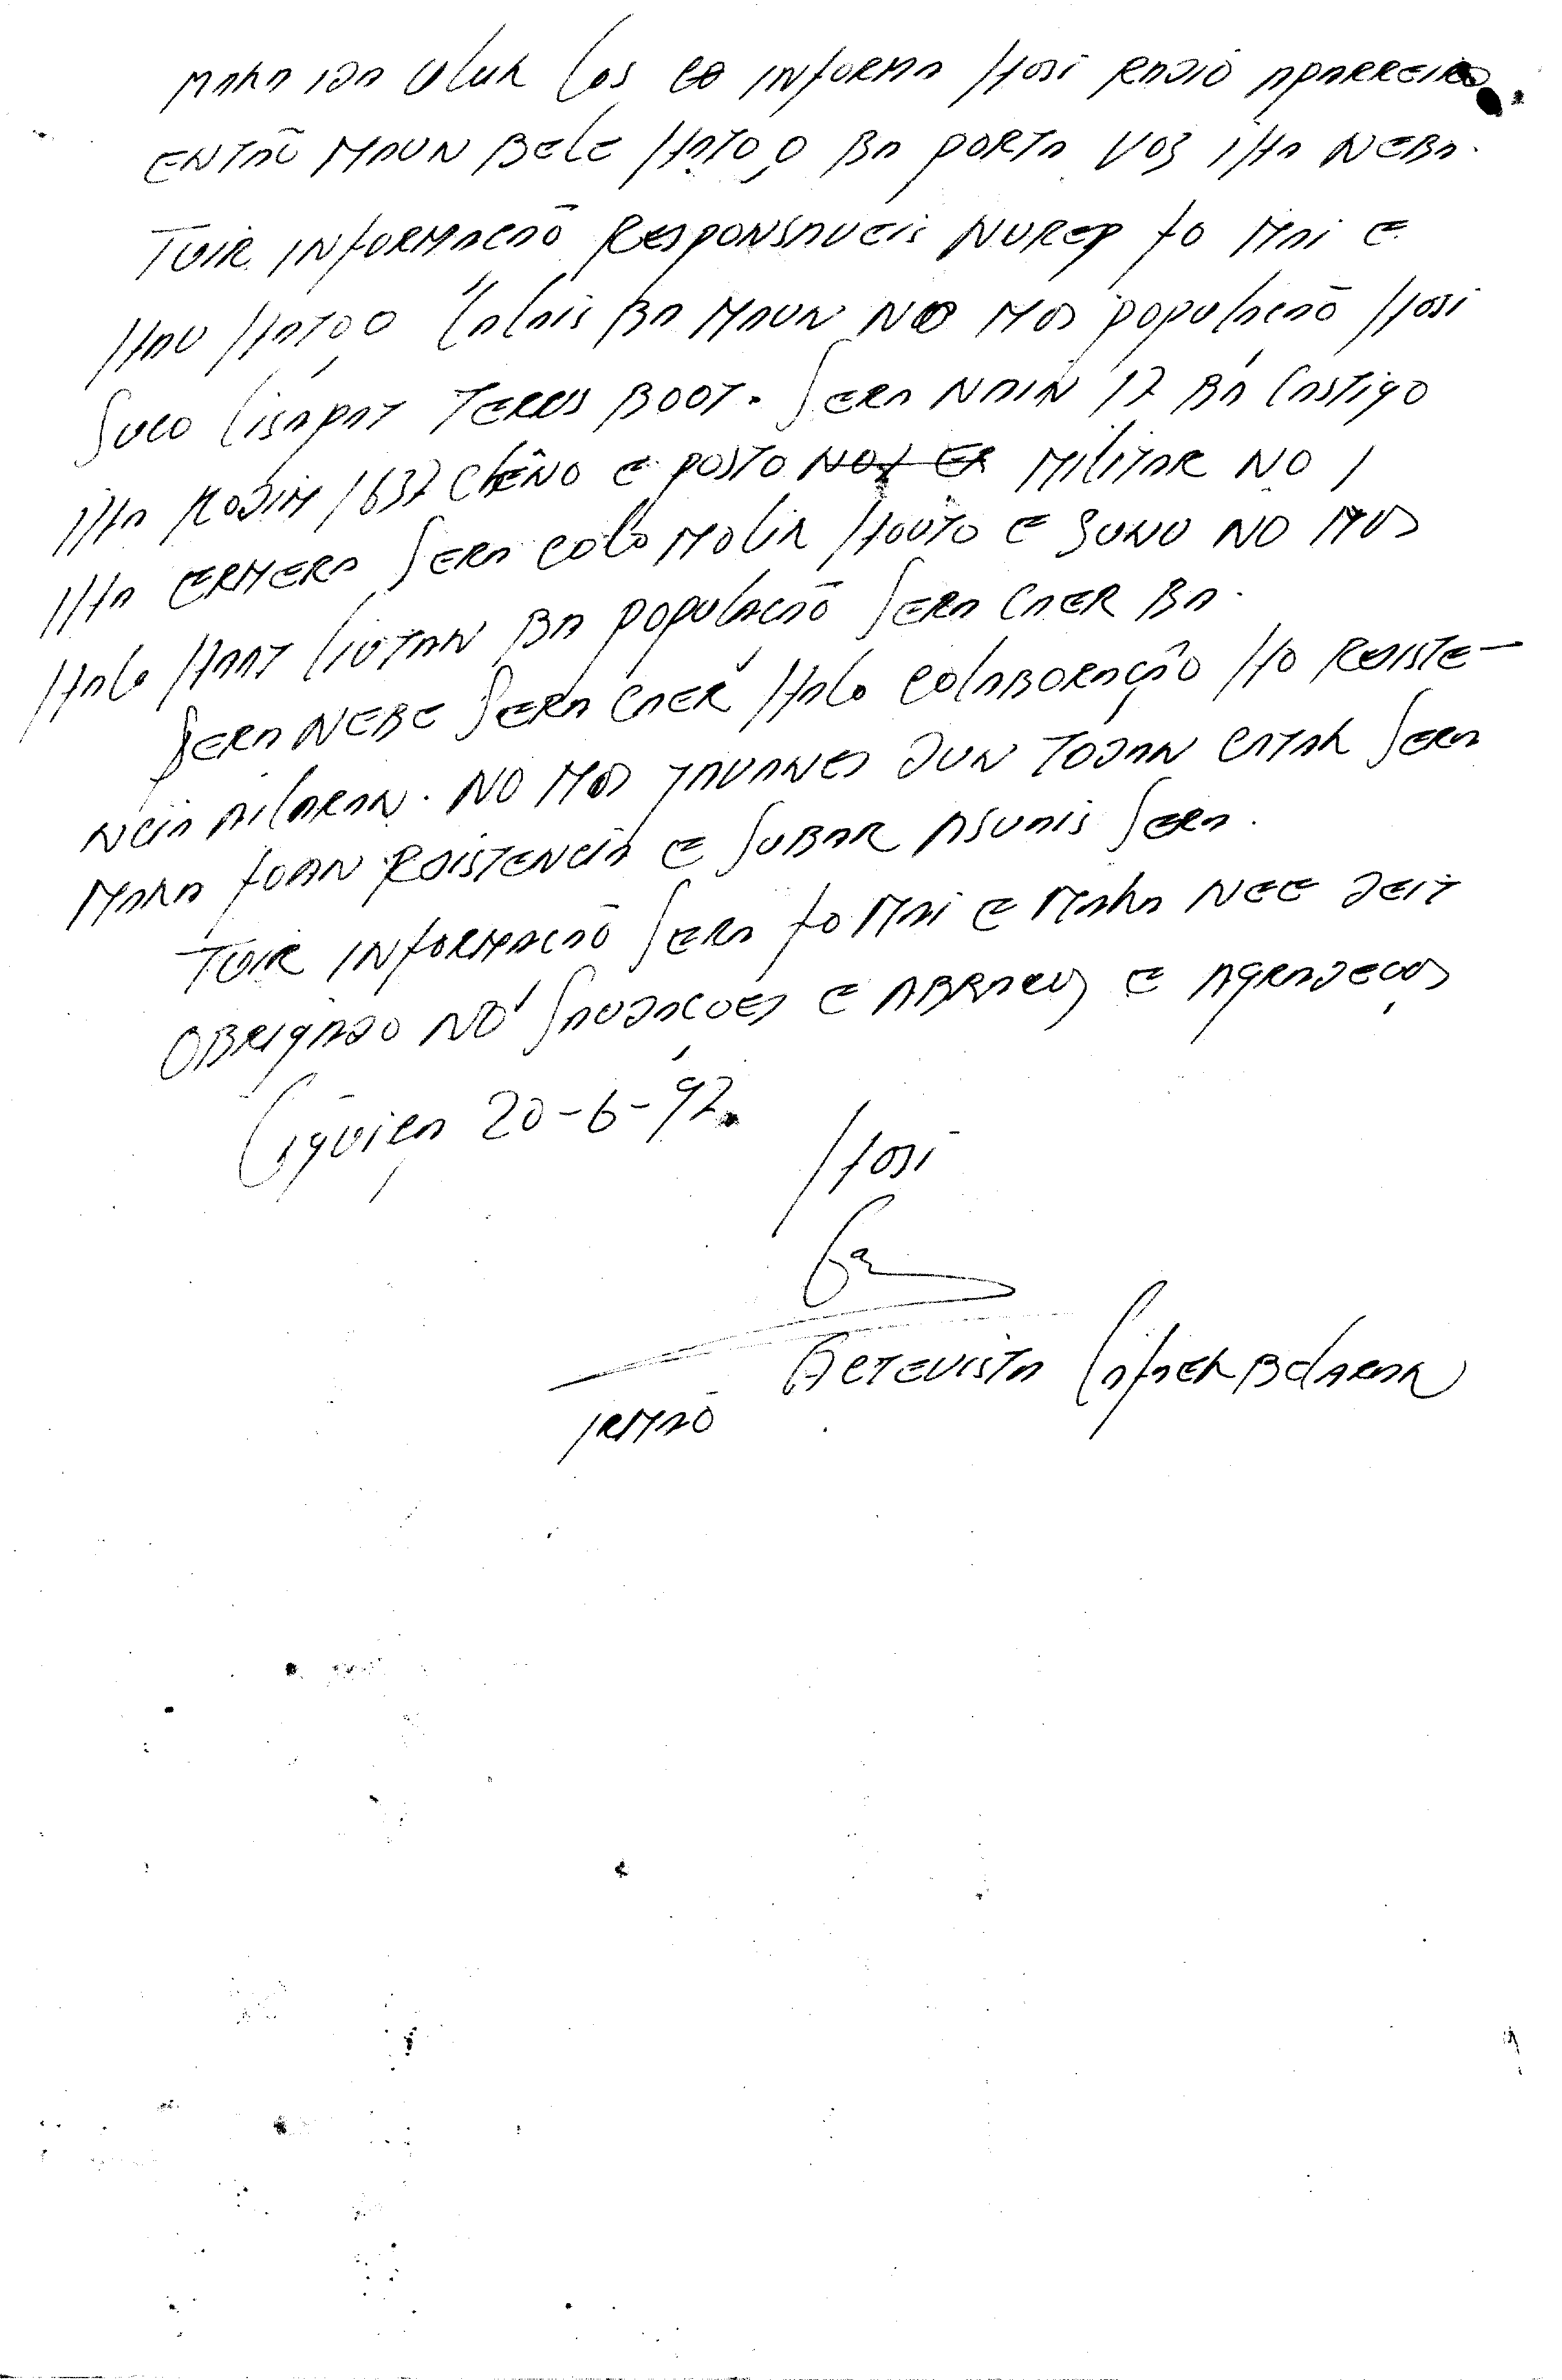 MAKA IDA ULUK LOS CO INFORMA HOSI RADIO APARREIRO
ENTAÕ MAUN BELE HATO,O BA PORTA VOZ IHA NEBA.
TUIR INFORMACAÕ RESPONSAVEIS NUREP FO MAI E
HAU HATO,O LALAIS BA MAUN NO MOS POPULACAÕ HOSI
SUCO LISAPAT TERUS BOOT. SERA NAIN 17 BÁ CASTIGO
IHA KODIM 1637 E POSTO MILITAR NO 1
IHA ERMERA SERA COLO MOLIK HOUTO E SUNU NO MOS
HALO HAAT LIUTAN BA POPULACAÕ SERA CAER BA.
SERA NEBE SERA CAER HALO COLABORAÇÃO HO RESISTE-
NCIA AILARAN. NO MOS JAVANES DUN TODAN CATAK SERA
MAKA FOAN RESISTENCIA E SUBAR ASUAIS SERA.
TUIR INFORMACAÕ SERA FO MAI E MAKA NEE DEIT
OBRIGADO NO SAUDAÇOES E ABRACOS E AGRADEÇOS
LIQUIÇA 20-6-92.
HOSI
ACTEVISTA LAFAEK BELARAK
IRMAÕ